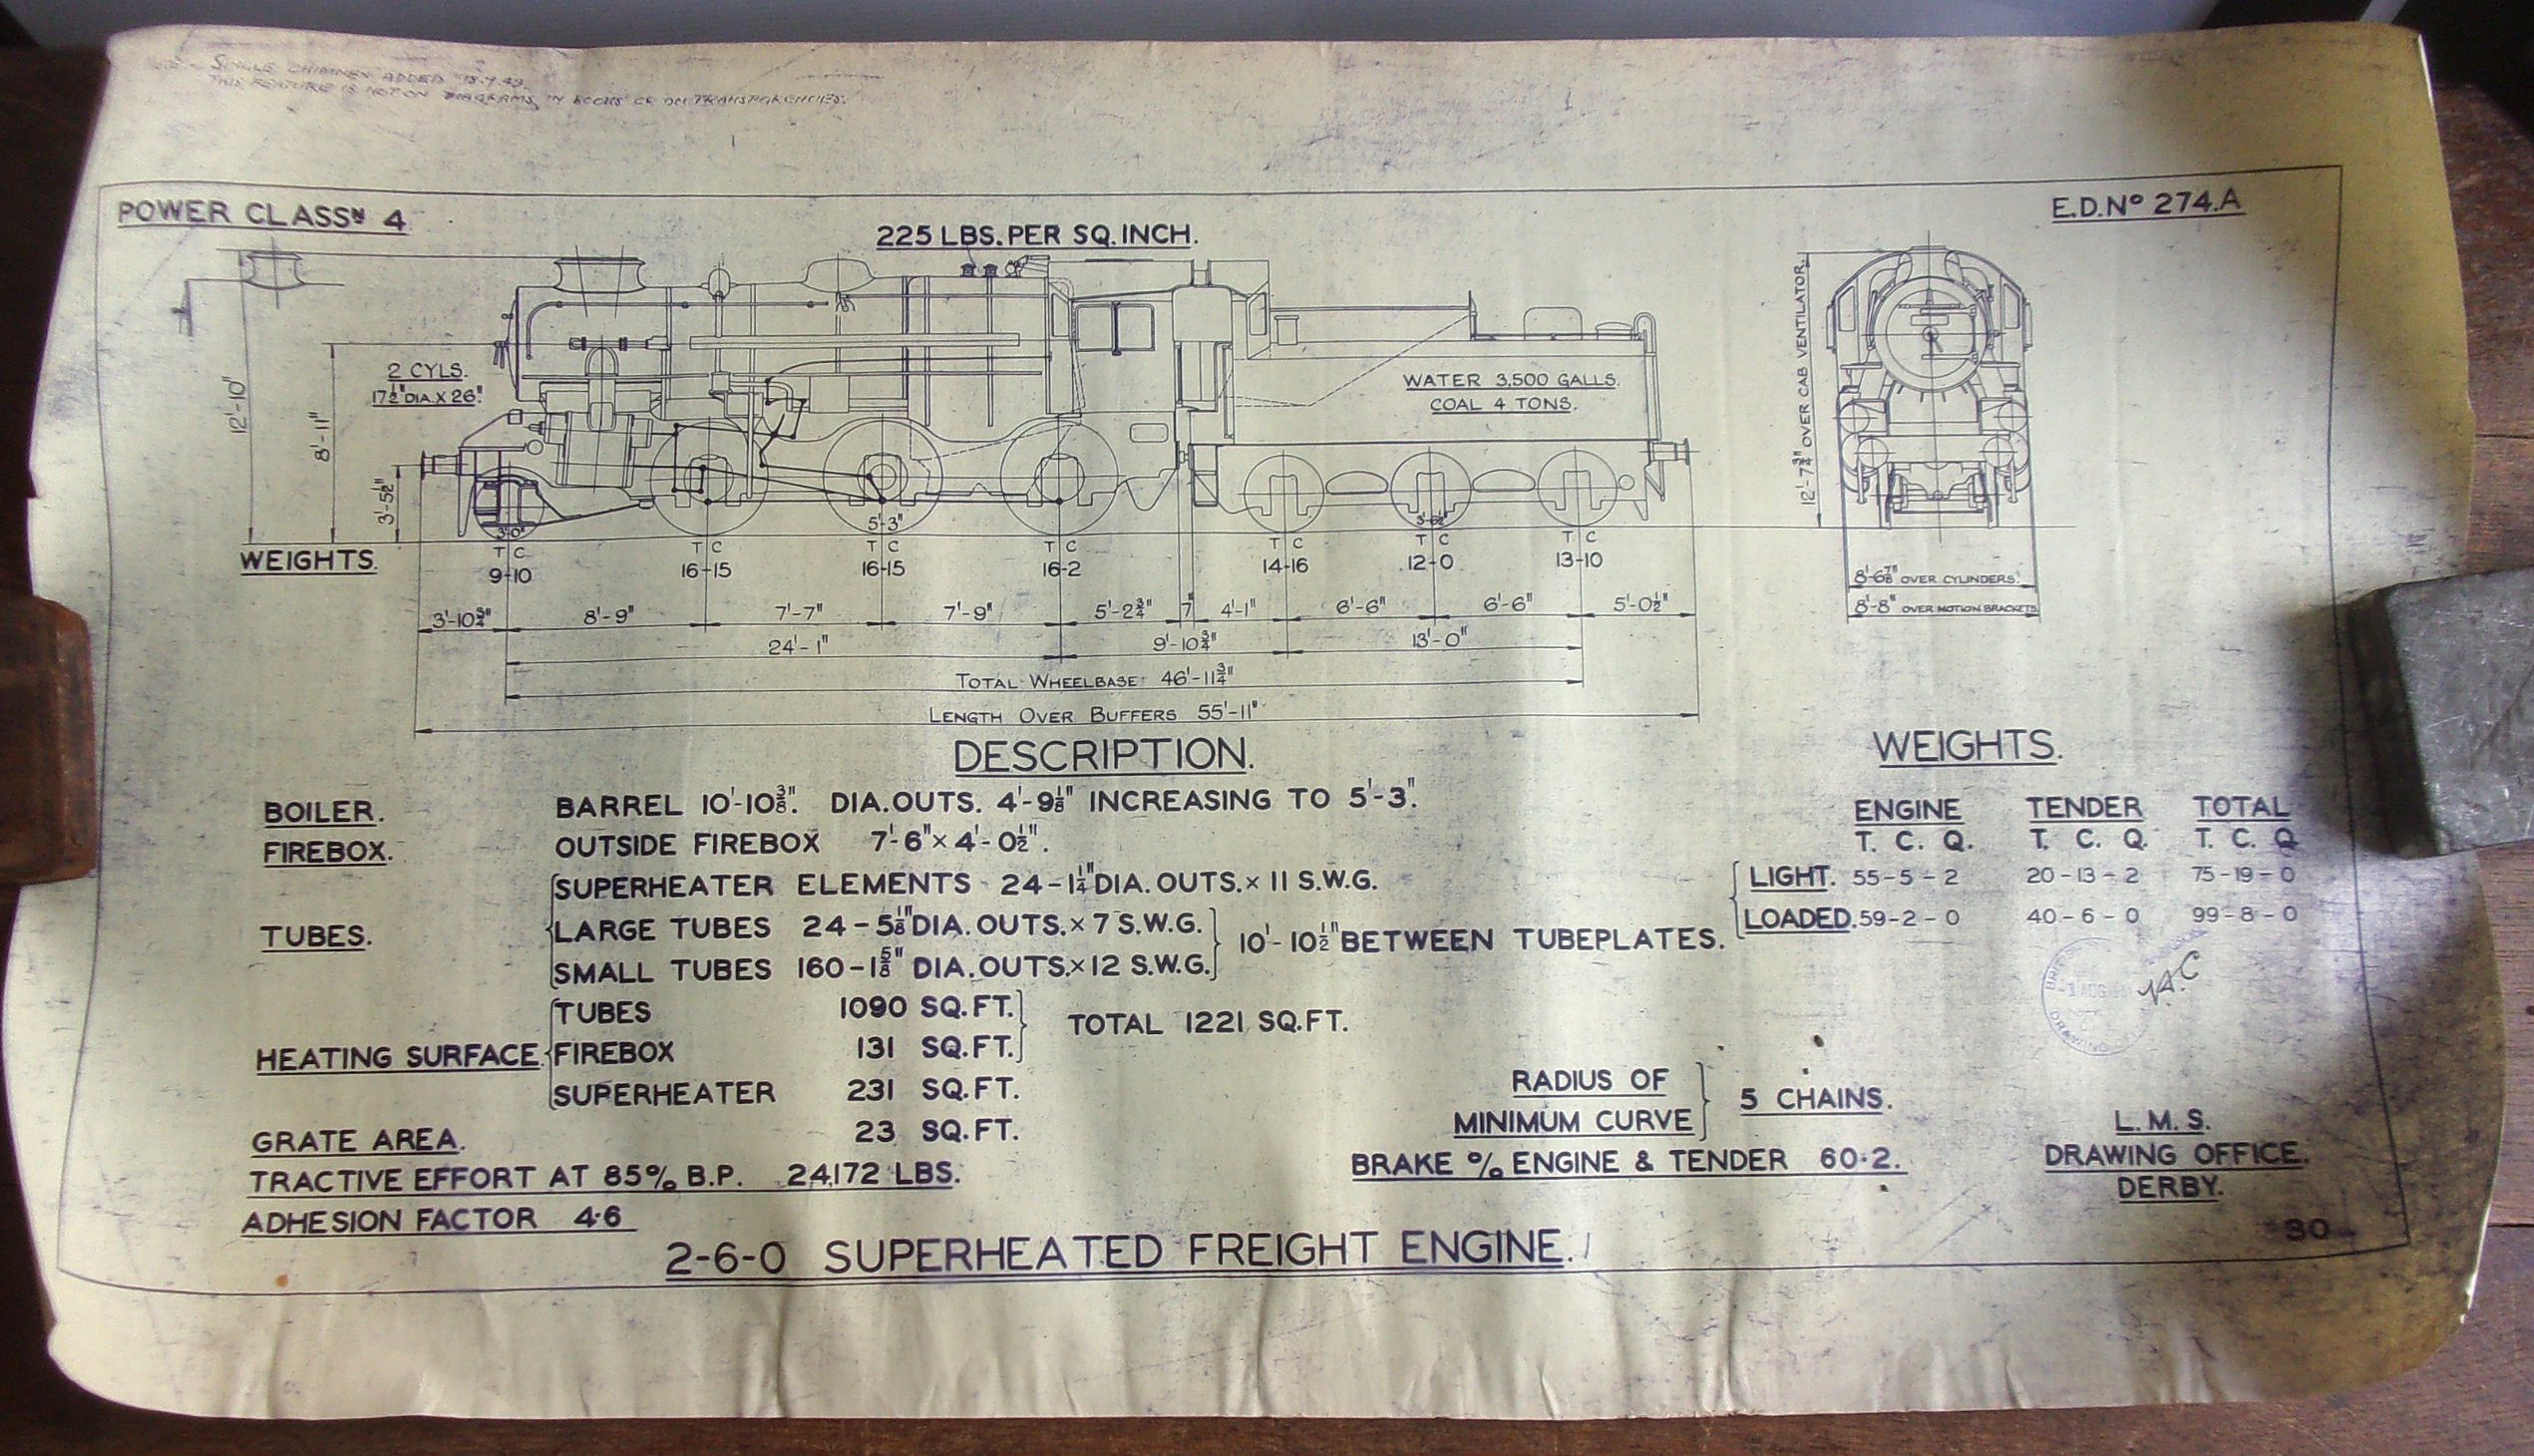 SINGLE CHIMNEY ADDED 13.7.49.
THIS FEATURE IS NOT ON DIAGRAMS IN BOOKS OR ON TRANSPARENCIES.
POWER CLASSN 4
225 LBS. PER SQ. INCH.
E.D. No 274.A
2 CYLS.
17½" DIA. X 26".
12'-10"
8'-11"
3'-5½"
WATER 3,500 GALLS.
COAL 4 TONS.
12'-7¾" OVER CAB VENTILATOR.
3'-0"
5'-3"
3'-6½"
WEIGHTS.
T C T C T C T C T C T C T C
9-10 16-15 16-15 16-2 14-16 12-0 13-10
8'-6⅞" OVER CYLINDERS.
8'-8" OVER MOTION BRACKETS
3'-10¾" 8'-9" 7'-7" 7'-9" 5'-2¾" 7" 4'-1" 6'-6" 6'-6" 5'-0½"
24'-1" 9'-10¾" 13'-0"
TOTAL WHEELBASE 46'-11¾"
LENGTH OVER BUFFERS 55'-11"
DESCRIPTION.
BOILER. BARREL 10'-10⅜". DIA. OUTS. 4'-9⅛" INCREASING TO 5'-3".
FIREBOX. OUTSIDE FIREBOX 7'-6" × 4'-0½".
TUBES. SUPERHEATER ELEMENTS - 24-1¼" DIA. OUTS. × 11 S.W.G.
LARGE TUBES 24-5⅛" DIA. OUTS. × 7 S.W.G.
SMALL TUBES 160-1⅝" DIA. OUTS. × 12 S.W.G.
10'-10½" BETWEEN TUBEPLATES.
HEATING SURFACE. TUBES 1090 SQ. FT.
FIREBOX 131 SQ. FT.
TOTAL 1221 SQ. FT.
SUPERHEATER 231 SQ. FT.
GRATE AREA. 23 SQ. FT.
TRACTIVE EFFORT AT 85% B.P. 24,172 LBS.
ADHESION FACTOR 4·6
WEIGHTS.
ENGINE TENDER TOTAL
T. C. Q. T. C. Q. T. C. Q.
LIGHT. 55-5-2 20-13-2 75-19-0
LOADED. 59-2-0 40-6-0 99-8-0
RADIUS OF
MINIMUM CURVE
5 CHAINS.
BRAKE % ENGINE & TENDER 60·2.
L. M. S.
DRAWING OFFICE.
DERBY.
30
2-6-0 SUPERHEATED FREIGHT ENGINE.